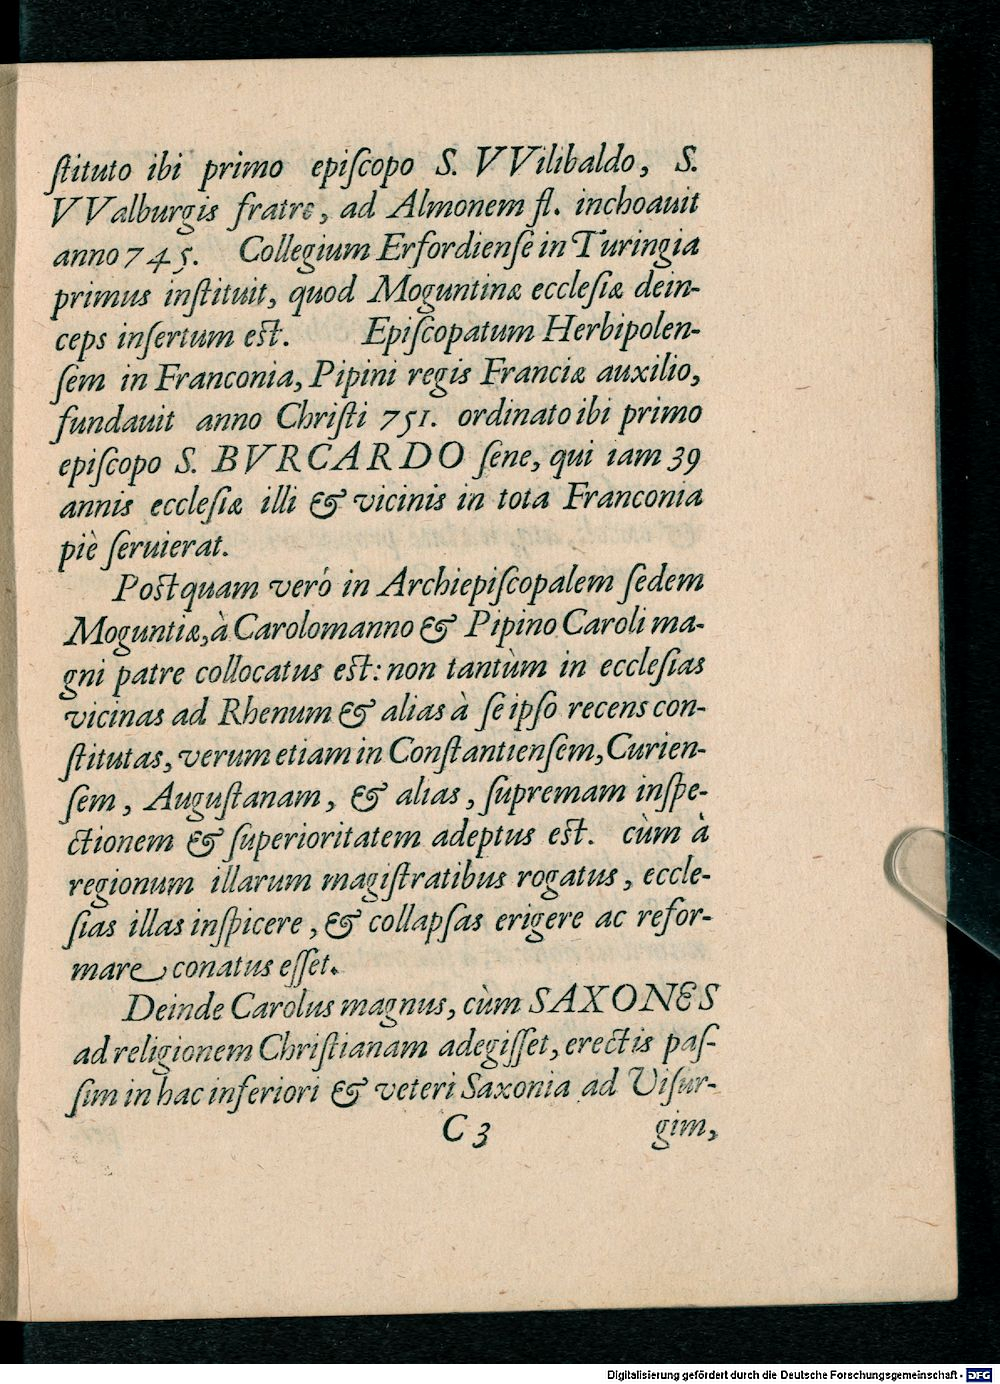 ſtituto ibi primo epiſcopo S. VVilibaldo, S.
VValburgis fratre, ad Almonem fl. inchoauit
anno 745. Collegium Erfordienſe in Turingia
primus inſtituit, quod Moguntinæ eccleſiæ dein-
ceps inſertum eſt. Epiſcopatum Herbipolen-
ſem in Franconia, Pipini regis Franciæ auxilio,
fundauit anno Chriſti 751. ordinato ibi primo
epiſcopo S. BVRCARDO ſene, qui iam 39
annis eccleſiæ illi & vicinis in tota Franconia
piè ſeruierat.
Poſtquam veró in Archiepiſcopalem ſedem
Moguntiæ, à Carolomanno & Pipino Caroli ma-
gni patre collocatus eſt: non tantùm in eccleſias
vicinas ad Rhenum & alias à ſe ipſo recens con-
ſtitutas, verum etiam in Conſtantienſem, Curien-
ſem, Auguſtanam, & alias, ſupremam inſpe-
ctionem & ſuperioritatem adeptus eſt. cùm à
regionum illarum magiſtratibus rogatus, eccle-
ſias illas inſpicere, & collapſas erigere ac refor-
mare conatus eſſet.
Deinde Carolus magnus, cùm SAXONES
ad religionem Chriſtianam adegiſſet, erectis paſ-
ſim in hac inferiori & veteri Saxonia ad Viſur-
C 3 gim,
Digitalisierung gefördert durch die Deutsche Forschungsgemeinschaft - DFG